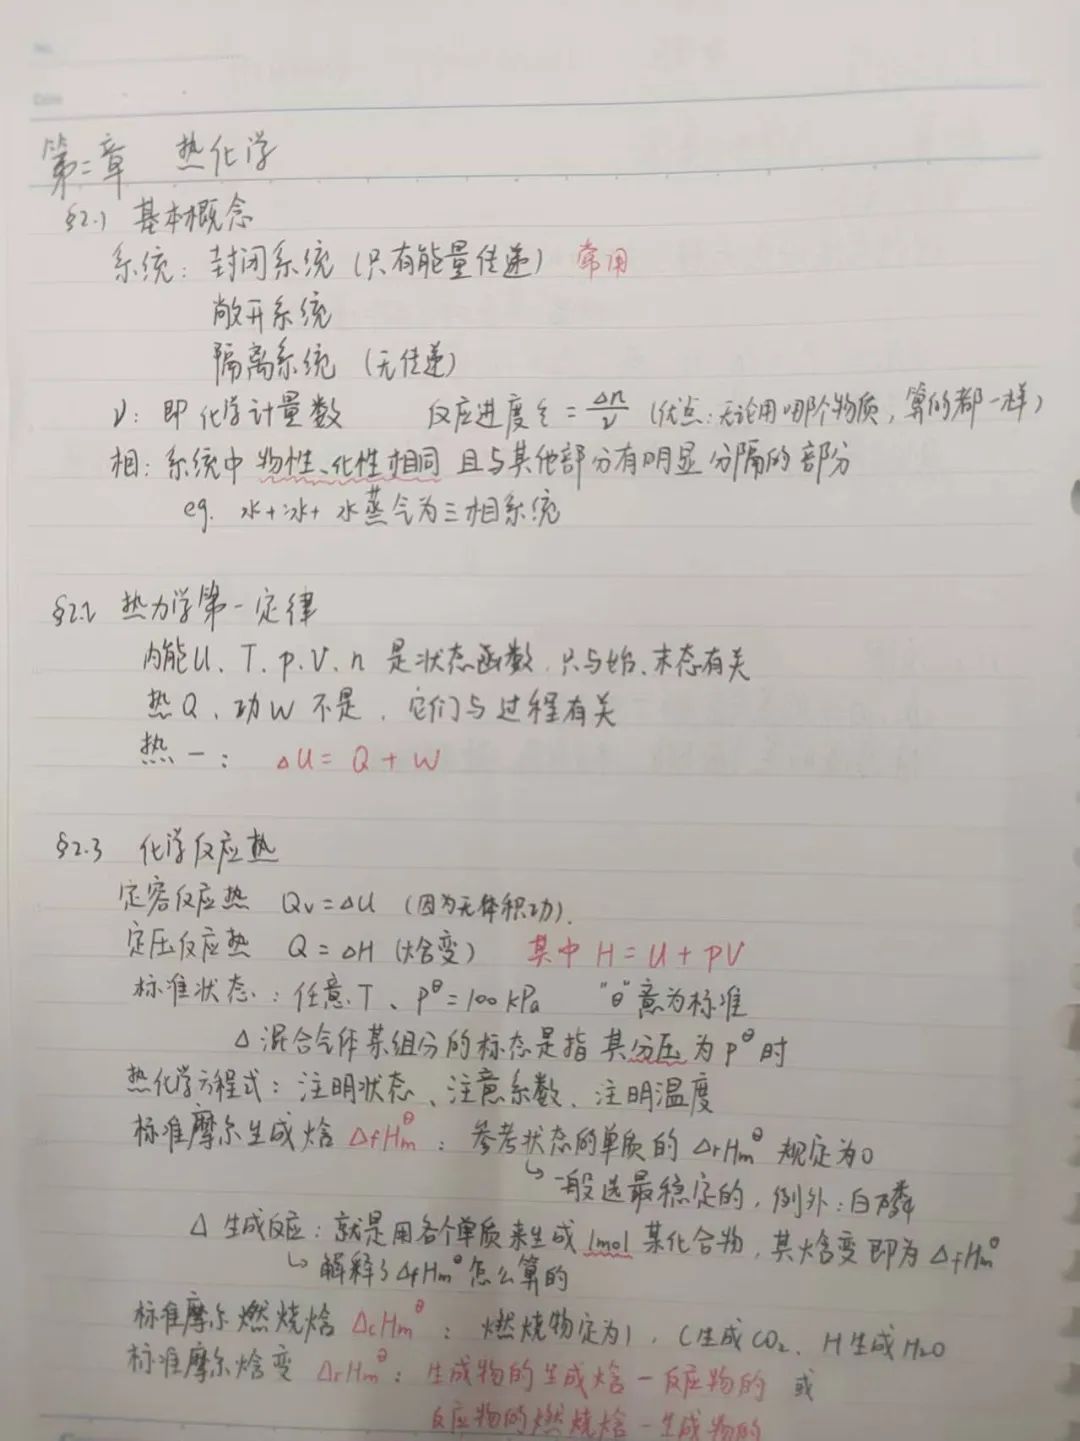 第二章 热化学
§2.1 基本概念
系统：封闭系统（只有能量传递） 常用
敞开系统
隔离系统（无传递）
ν：即化学计量数 反应进度ξ = Δn/ν（优点：无论用哪个物质，算的都一样）
相：系统中物性、化性相同且与其他部分有明显分隔的部分
eg. 水+冰+水蒸气为三相系统
§2.2 热力学第一定律
内能U、T、p、V、n 是状态函数，只与始、末态有关
热Q、功W 不是，它们与过程有关
热一：ΔU = Q + W
§2.3 化学反应热
定容反应热 Qv=ΔU（因为无体积功）.
定压反应热 Q = ΔH（焓变） 其中 H = U + pV
标准状态：任意T、p^θ=100kPa “θ”意为标准
Δ 混合气体某组分的标态是指其分压为p^θ时
热化学方程式：注明状态、注意系数、注明温度
标准摩尔生成焓 ΔfHm^θ：参考状态的单质的 ΔrHm^θ 规定为0
↳ 一般选最稳定的，例外：白磷
Δ 生成反应：就是用各个单质来生成1mol某化合物，其焓变即为ΔfHm^θ
↳ 解释了ΔfHm^θ怎么算的
标准摩尔燃烧焓 ΔcHm^θ：燃烧物定为1，C生成CO₂、H生成H₂O
标准摩尔焓变 ΔrHm^θ：生成物的生成焓－反应物的 或
反应物的燃烧焓－生成物的